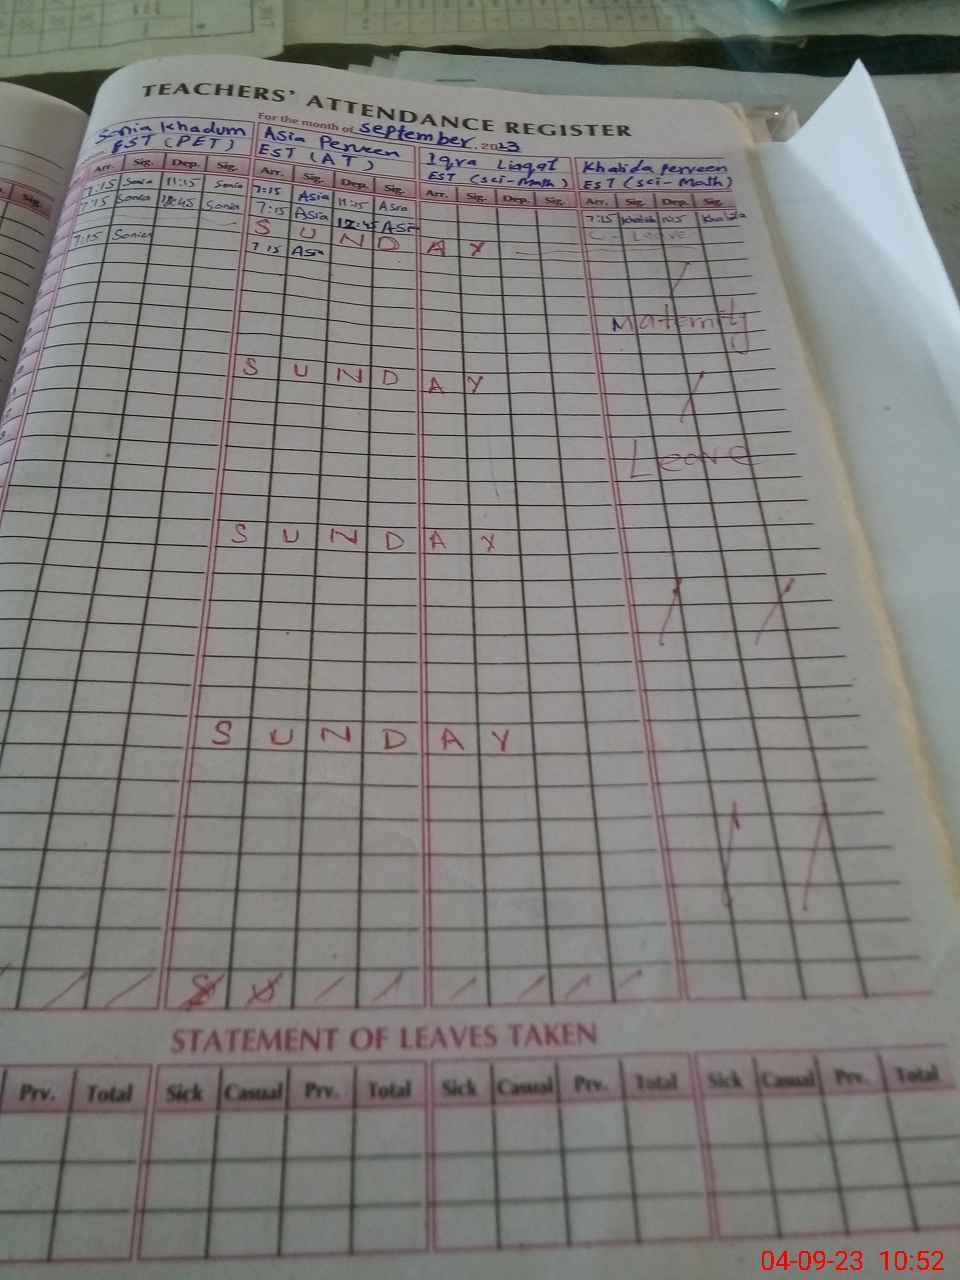 TEACHERS' ATTENDANCE REGISTER
For the month of September. 2023
Sania Khadum Asia Perveen Iqra Liaqat Khalida perveen
EST (PET) EST (AT) EST (sci-Math) EST (sci-Math)
Arr. Sig. Dep. Sig. Arr. Sig. Dep. Sig. Arr. Sig. Dep. Sig. Arr. Sig. Dep. Sig.
7:15 Sonia 11:15 Sonia 7:15 Asia 11:15 Asia 7:15
7:15 Sonia Sonia 7:15 Asia 12:45 Asia C-Leave
S U N D A Y
7:15 Sonia 7:15 Asia
Maternity
S U N D A Y
Leave
S U N D A Y
S U N D A Y
STATEMENT OF LEAVES TAKEN
Prv. Total Sick Casual Prv. Total Sick Casual Prv. Total Sick Casual Prv. Total
04-09-23 10:52